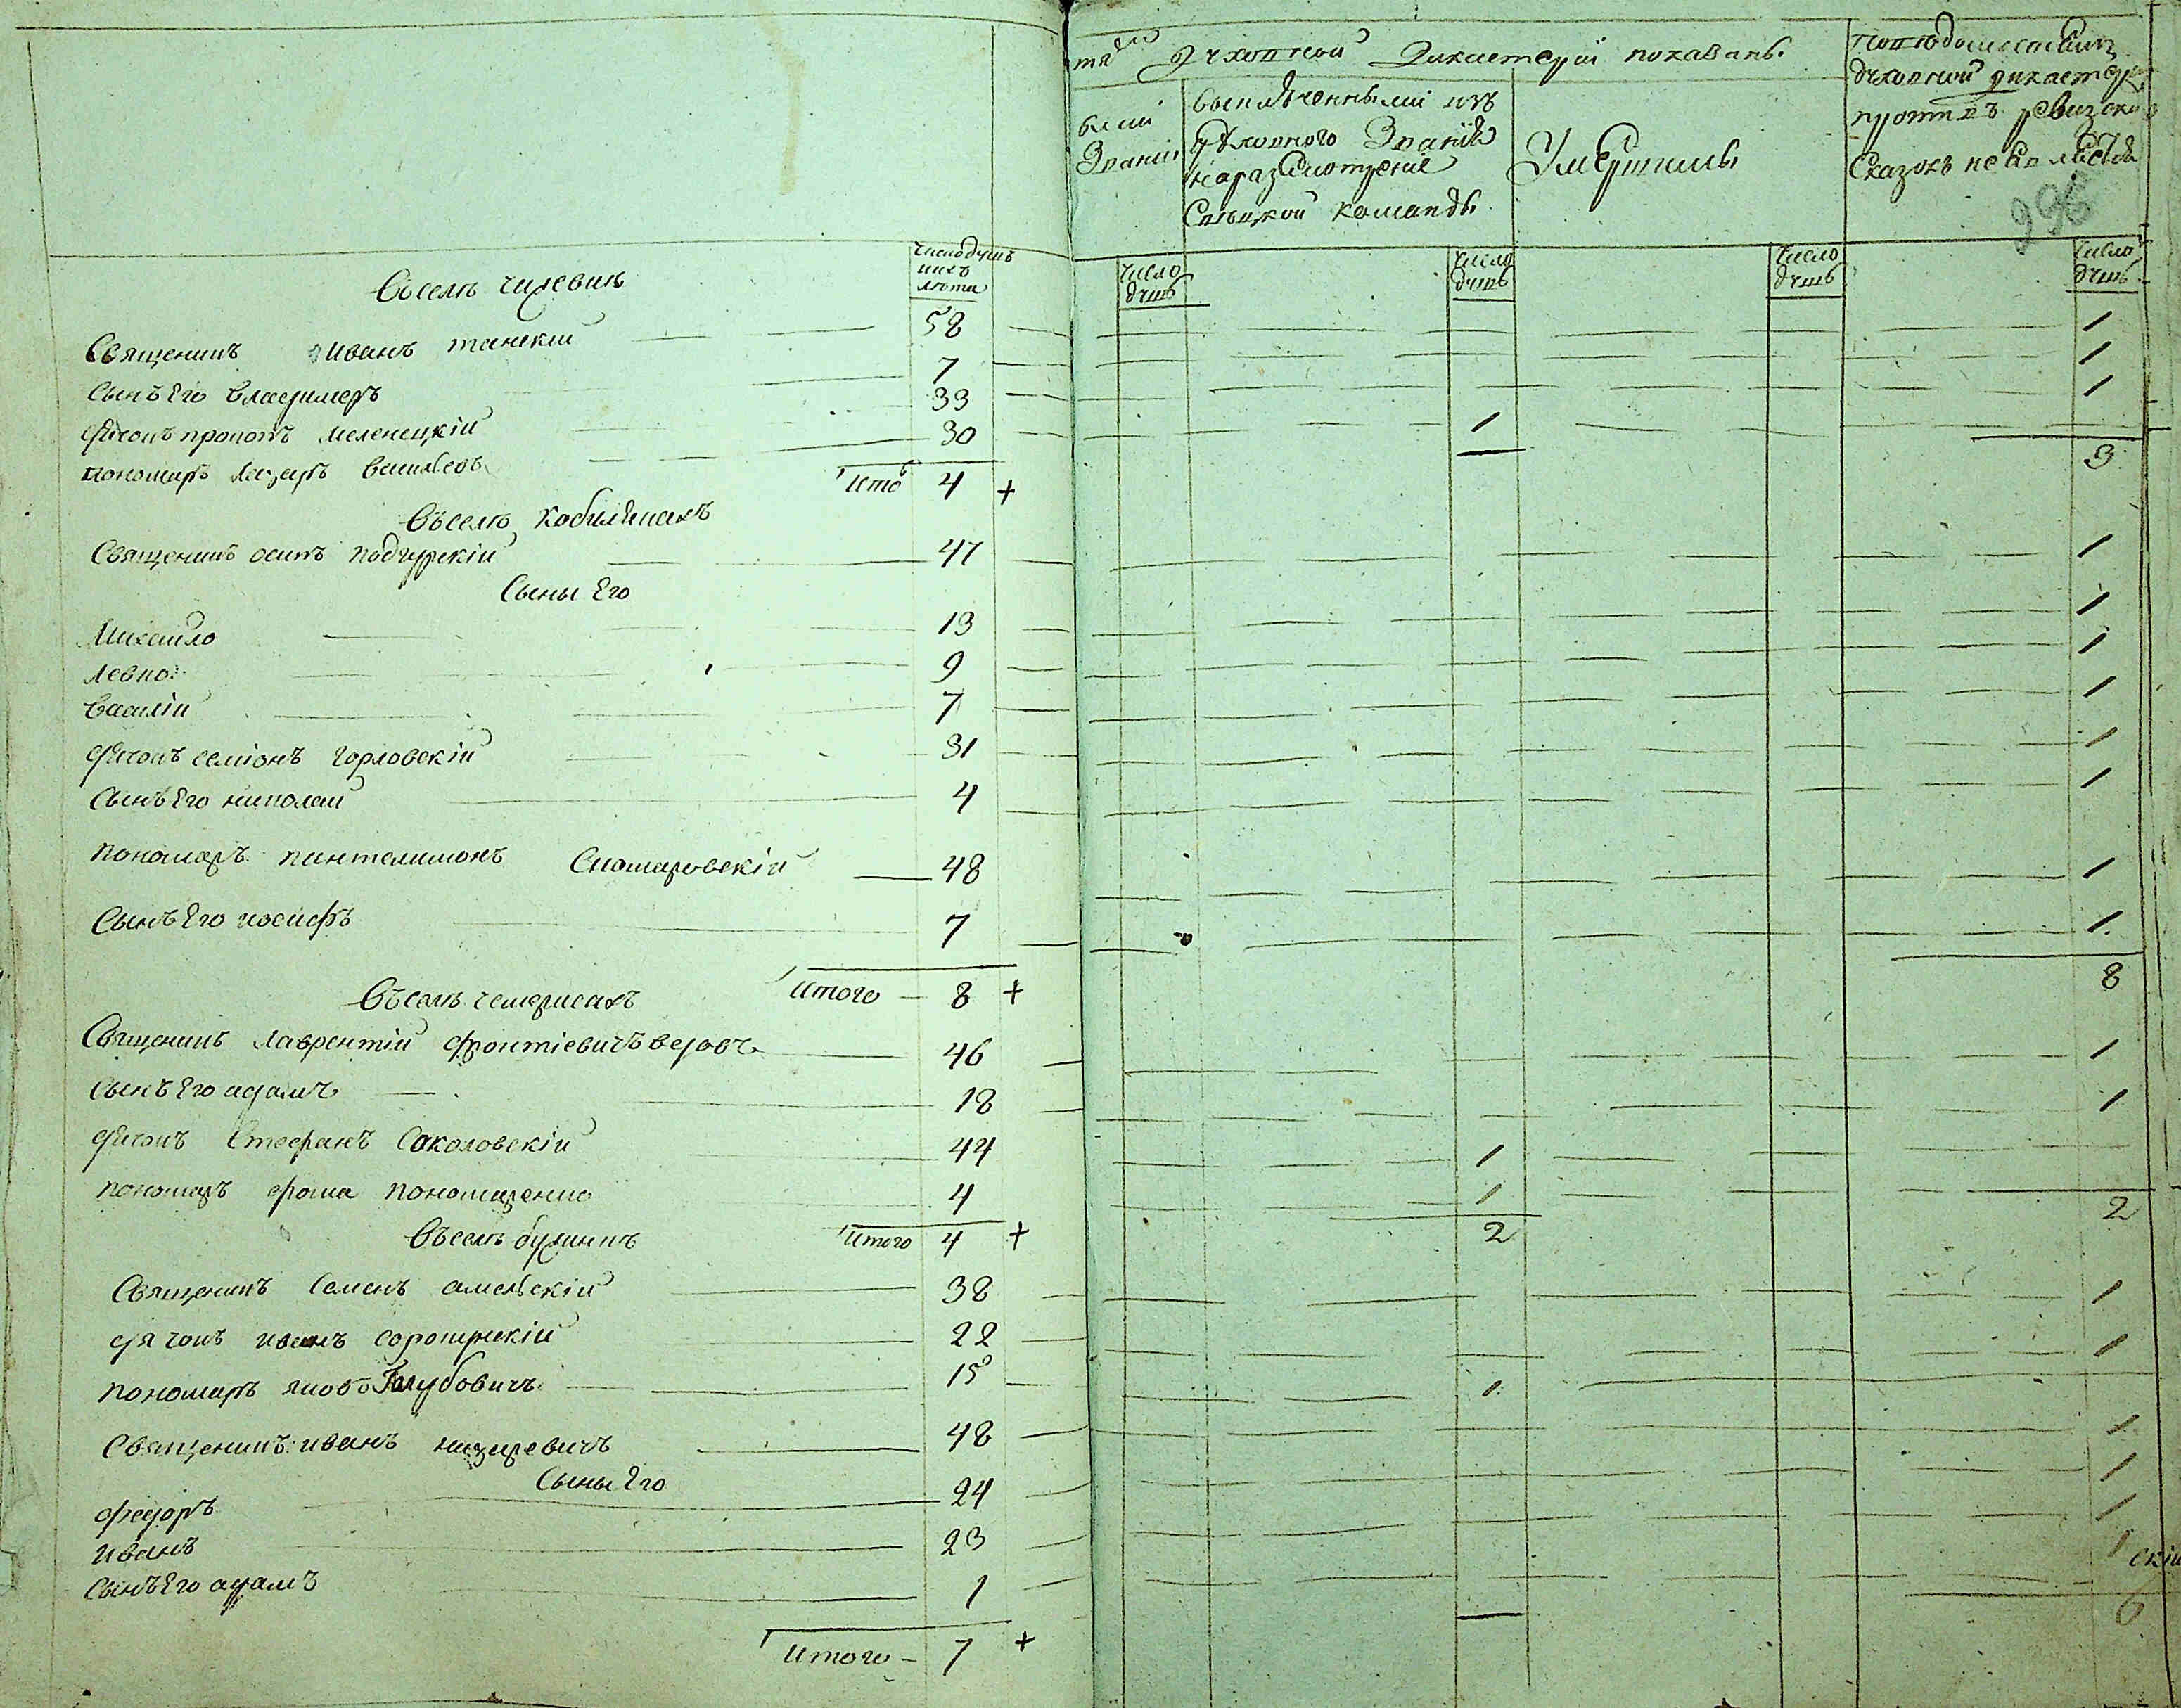 число душъ
ихъ
лѣта
Въ селѣ
Священикъ Иванъ танскій 58
Сынъ Его владимеръ 7
дячокъ прокопъ меленецкій 33
пономаръ лазаръ василевъ 30
Итого 4 +
Въ селѣ кобилянахъ
Священикъ осипъ подгурскій 47
Сыны Его
Михайло 13
левко 9
василій 7
дячокъ семіонъ горловскій 31
Сынъ Его николай 4
пономаръ пантелимонъ 48
Сынъ Его иосифъ 7
Итого 8 +
Въ селѣ чемерисахъ
Священикъ лаврентій 46
Сынъ Его адамъ 18
дячокъ Стефанъ Соколовскій 44
пономаръ фома пономаренко 4
Итого 4 +
Въ селѣ
Священикъ Семенъ 38
дячокъ иванъ 22
пономаръ яковъ Голубовичъ 15
Священикъ иванъ назаревичъ 48
Сыны Его
федоръ 24
иванъ 23
Сынъ Его адамъ 1
Итого 7 +
духовной Дикастеріи показаны
Званіи
выключенными изъ
духовного Званія
на разсмотреніе
Свѣцкой команды
Умершимы
по вѣдомостямъ
духовной дикастеріи
противъ ревизскихъ
Сказокъ
296
число
душъ
число
душъ
число
душъ
число
душъ
1
1
1
1
3
1
1
1
1
1
1
1
1
8
1
1
1
1
2
2
1
1
1
1
1
1
1
6
скій